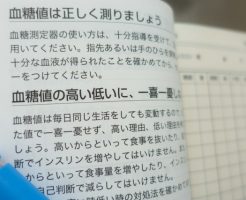 血糖値は正しく測りましょう
血糖測定器の使い方は、十分指導を受けて
用いてください。指先あるいは手のひらを
十分な血液が得られたことを確かめてから、
ーをつけてください。
血糖値の高い低いに、一喜一憂し
血糖値は毎日同じ生活をしても変動するので
た値で一喜一憂せず、高い理由、低い理由を
しょう。高いからといって食事を抜いたり、
断でインスリンを増やしてはいけません。
からといって食事量を増やしたり、インス
自己判断で減らしてはいけません。
時の対処法を確かめて